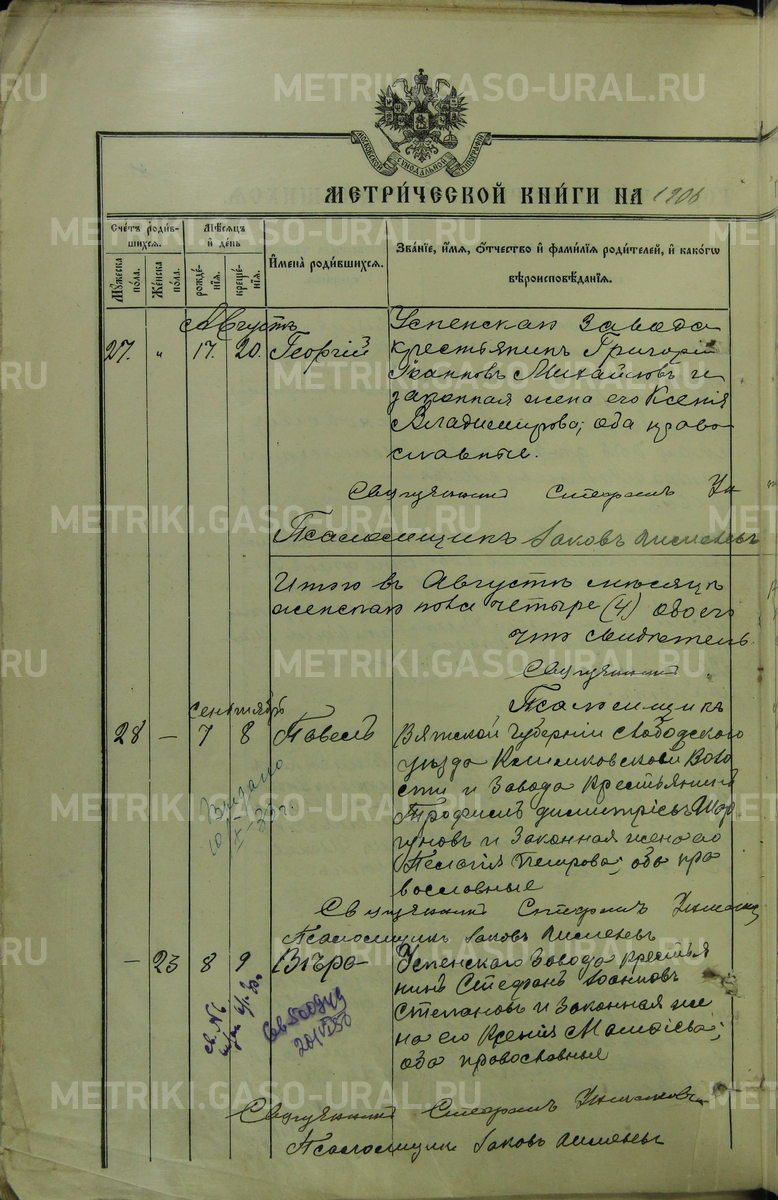 МОСКОВСКОЙ СУНОДАЛЬНОЙ ТИПОГРАФІИ
МЕТРИ́ЧЕСКОЙ КНИ́ГИ НА 1906
Сче́тъ роди́вшихся.
Мꙋ́жеска по́ла.
Же́нска по́ла.
Мѣ́сяцъ и де́нь
рожде́нія.
креще́нія.
Имена̀ роди́вшихся.
Зва́ніе, и́мя, о́тчество и фами́лія роди́телей, и како́гѡ
вѣроисповѣ́данія.
Августъ
27. " 17. 20. Георгій
Успенскаго завода
крестьянинъ Григорій
Іоанновъ Михайловъ и
законная жена его Ксенія
Владимірова; оба право
славные.
Священникъ Стефанъ
Псаломщикъ Іаковъ
Итого въ Августѣ мѣсяцѣ
женскаго пола четыре (4) обоего
что свидѣтель
Священникъ
Псаломщикъ
Сентябрь
28 — 7 8 Павелъ
Вятской губерніи Слободского
уѣзда Климковской Воло
сти и Завода Крестьянинъ
Трофимъ Димитріевъ
и Законная жена его
Пелагія Петрова; оба пра
вославные
Священникъ Стефанъ
Псаломщикъ Іаковъ
— 23 8 9 Вѣра
Успенскаго Завода Крестья
нинъ Стефанъ Іоанновъ
Степановъ и Законная же
на его Ксенія
оба православные
Священникъ Стефанъ
Псаломщикъ Іаковъ
METRIKI.GASO-URAL.RU